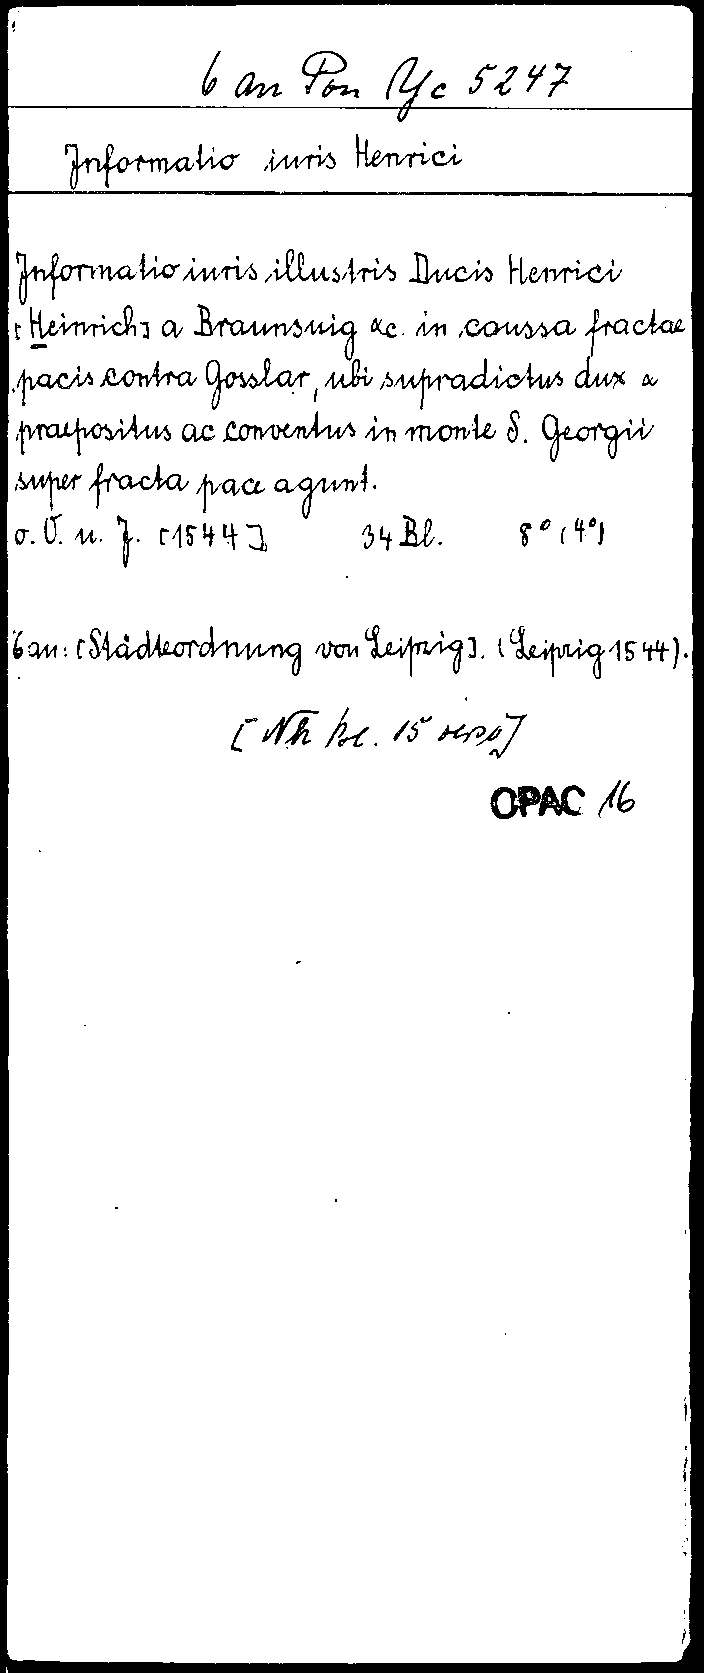 6 an Pon Yc 5247
Informatio iuris Henrici
Informatio iuris illustris Ducis Henrici
[Heinrich] a Braunsuig &c. in caussa fractae
pacis contra Gosslar, ubi supradictus dux &
praepositus ac conventus in monte S. Georgii
super fracta pace agunt.
o. O. u. J. [1544] 34 Bl. 8° (4°)
6 an: [Städteordnung von Leipzig]. (Leipzig 1544).
15 verso]
OPAC 16